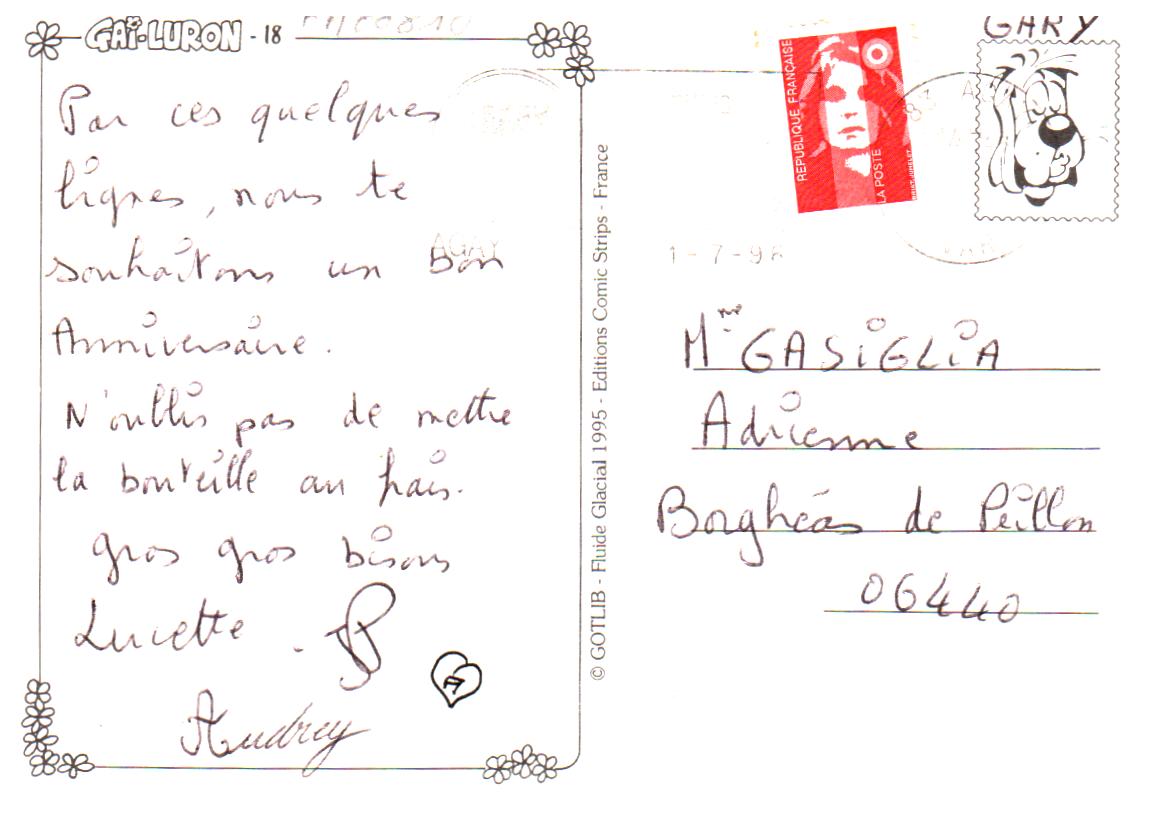 GAI-LURON - 18
Par ces quelques
lignes, nous te
souhaitons un bon
Anniversaire.
N'oublis pas de mettre
la bouteille au frais.
gros gros bisous
Lucette.
Audrey
A
© GOTLIB - Fluide Glacial 1995 - Editions Comic Strips - France
REPUBLIQUE FRANÇAISE
LA POSTE
GARY
AGAY
1-7-96
Mme GASIGLIA
Adrienne
Borghéas de Peillon
06440